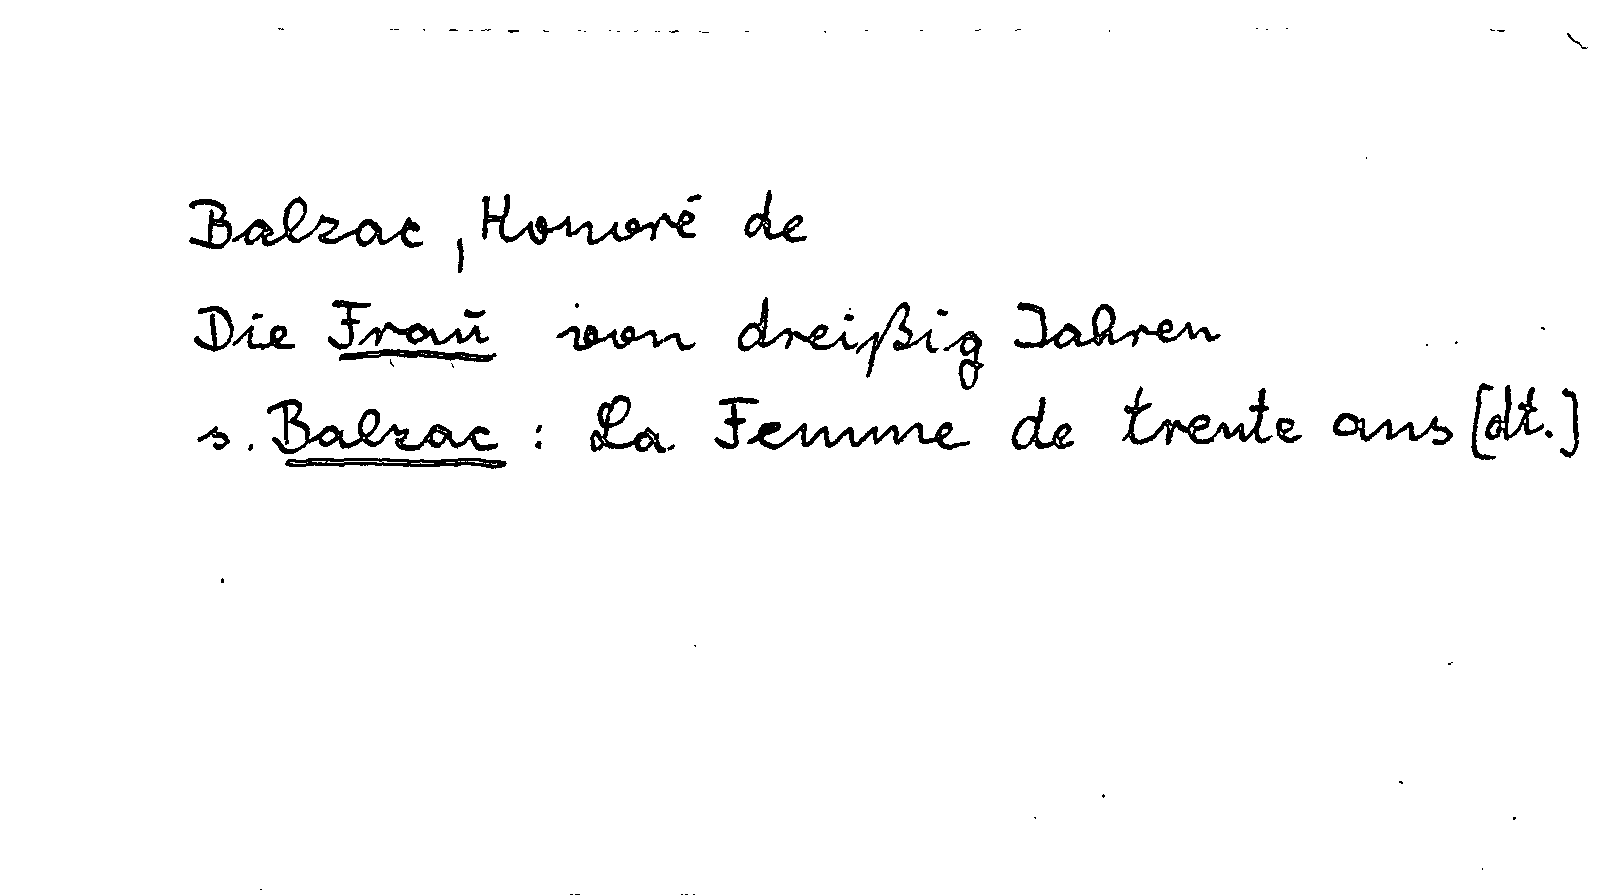 Balzac, Honoré de
Die Frau von dreißig Jahren
s. Balzac: La Femme de trente ans [dt.]